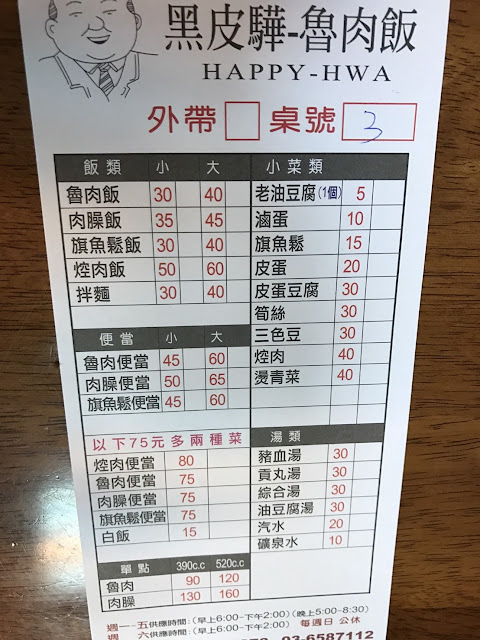 黑皮驊-魯肉飯
HAPPY-HWA
外帶 桌號 3
飯類 小 大
魯肉飯 30 40
肉臊飯 35 45
旗魚鬆飯 30 40
焢肉飯 50 60
拌麵 30 40
便當 小 大
魯肉便當 45 60
肉臊便當 50 65
旗魚鬆便當 45 60
以下75元多兩種菜
焢肉便當 80
魯肉便當 75
肉臊便當 75
旗魚鬆便當 75
白飯 15
單點 390c.c 520c.c
魯肉 90 120
肉臊 130 160
小菜類
老油豆腐(1個) 5
滷蛋 10
旗魚鬆 15
皮蛋 20
皮蛋豆腐 30
筍絲 30
三色豆 30
焢肉 40
燙青菜 40
湯類
豬血湯 30
貢丸湯 30
綜合湯 30
油豆腐湯 30
汽水 20
礦泉水 10
週一-五供應時間:(早上6:00-下午2:00)(晚上5:00-8:30)
週 六供應時間:(早上6:00-下午2:00) 每週日 公休
03-6587112